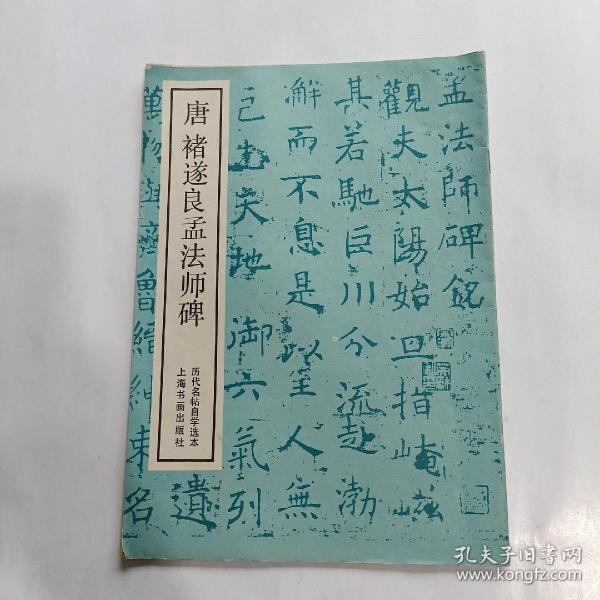 唐 褚遂良孟法师碑
历代名帖自学选本
上海书画出版社
孟法師碑銘
觀夫太陽始旦指崦嵫
其若馳巨川分流赴渤
澥而不息是以至人無
己先天地御六氣列
遺
萬物與齊魯縉紳束名
孔夫子旧书网
www.kongfz.com